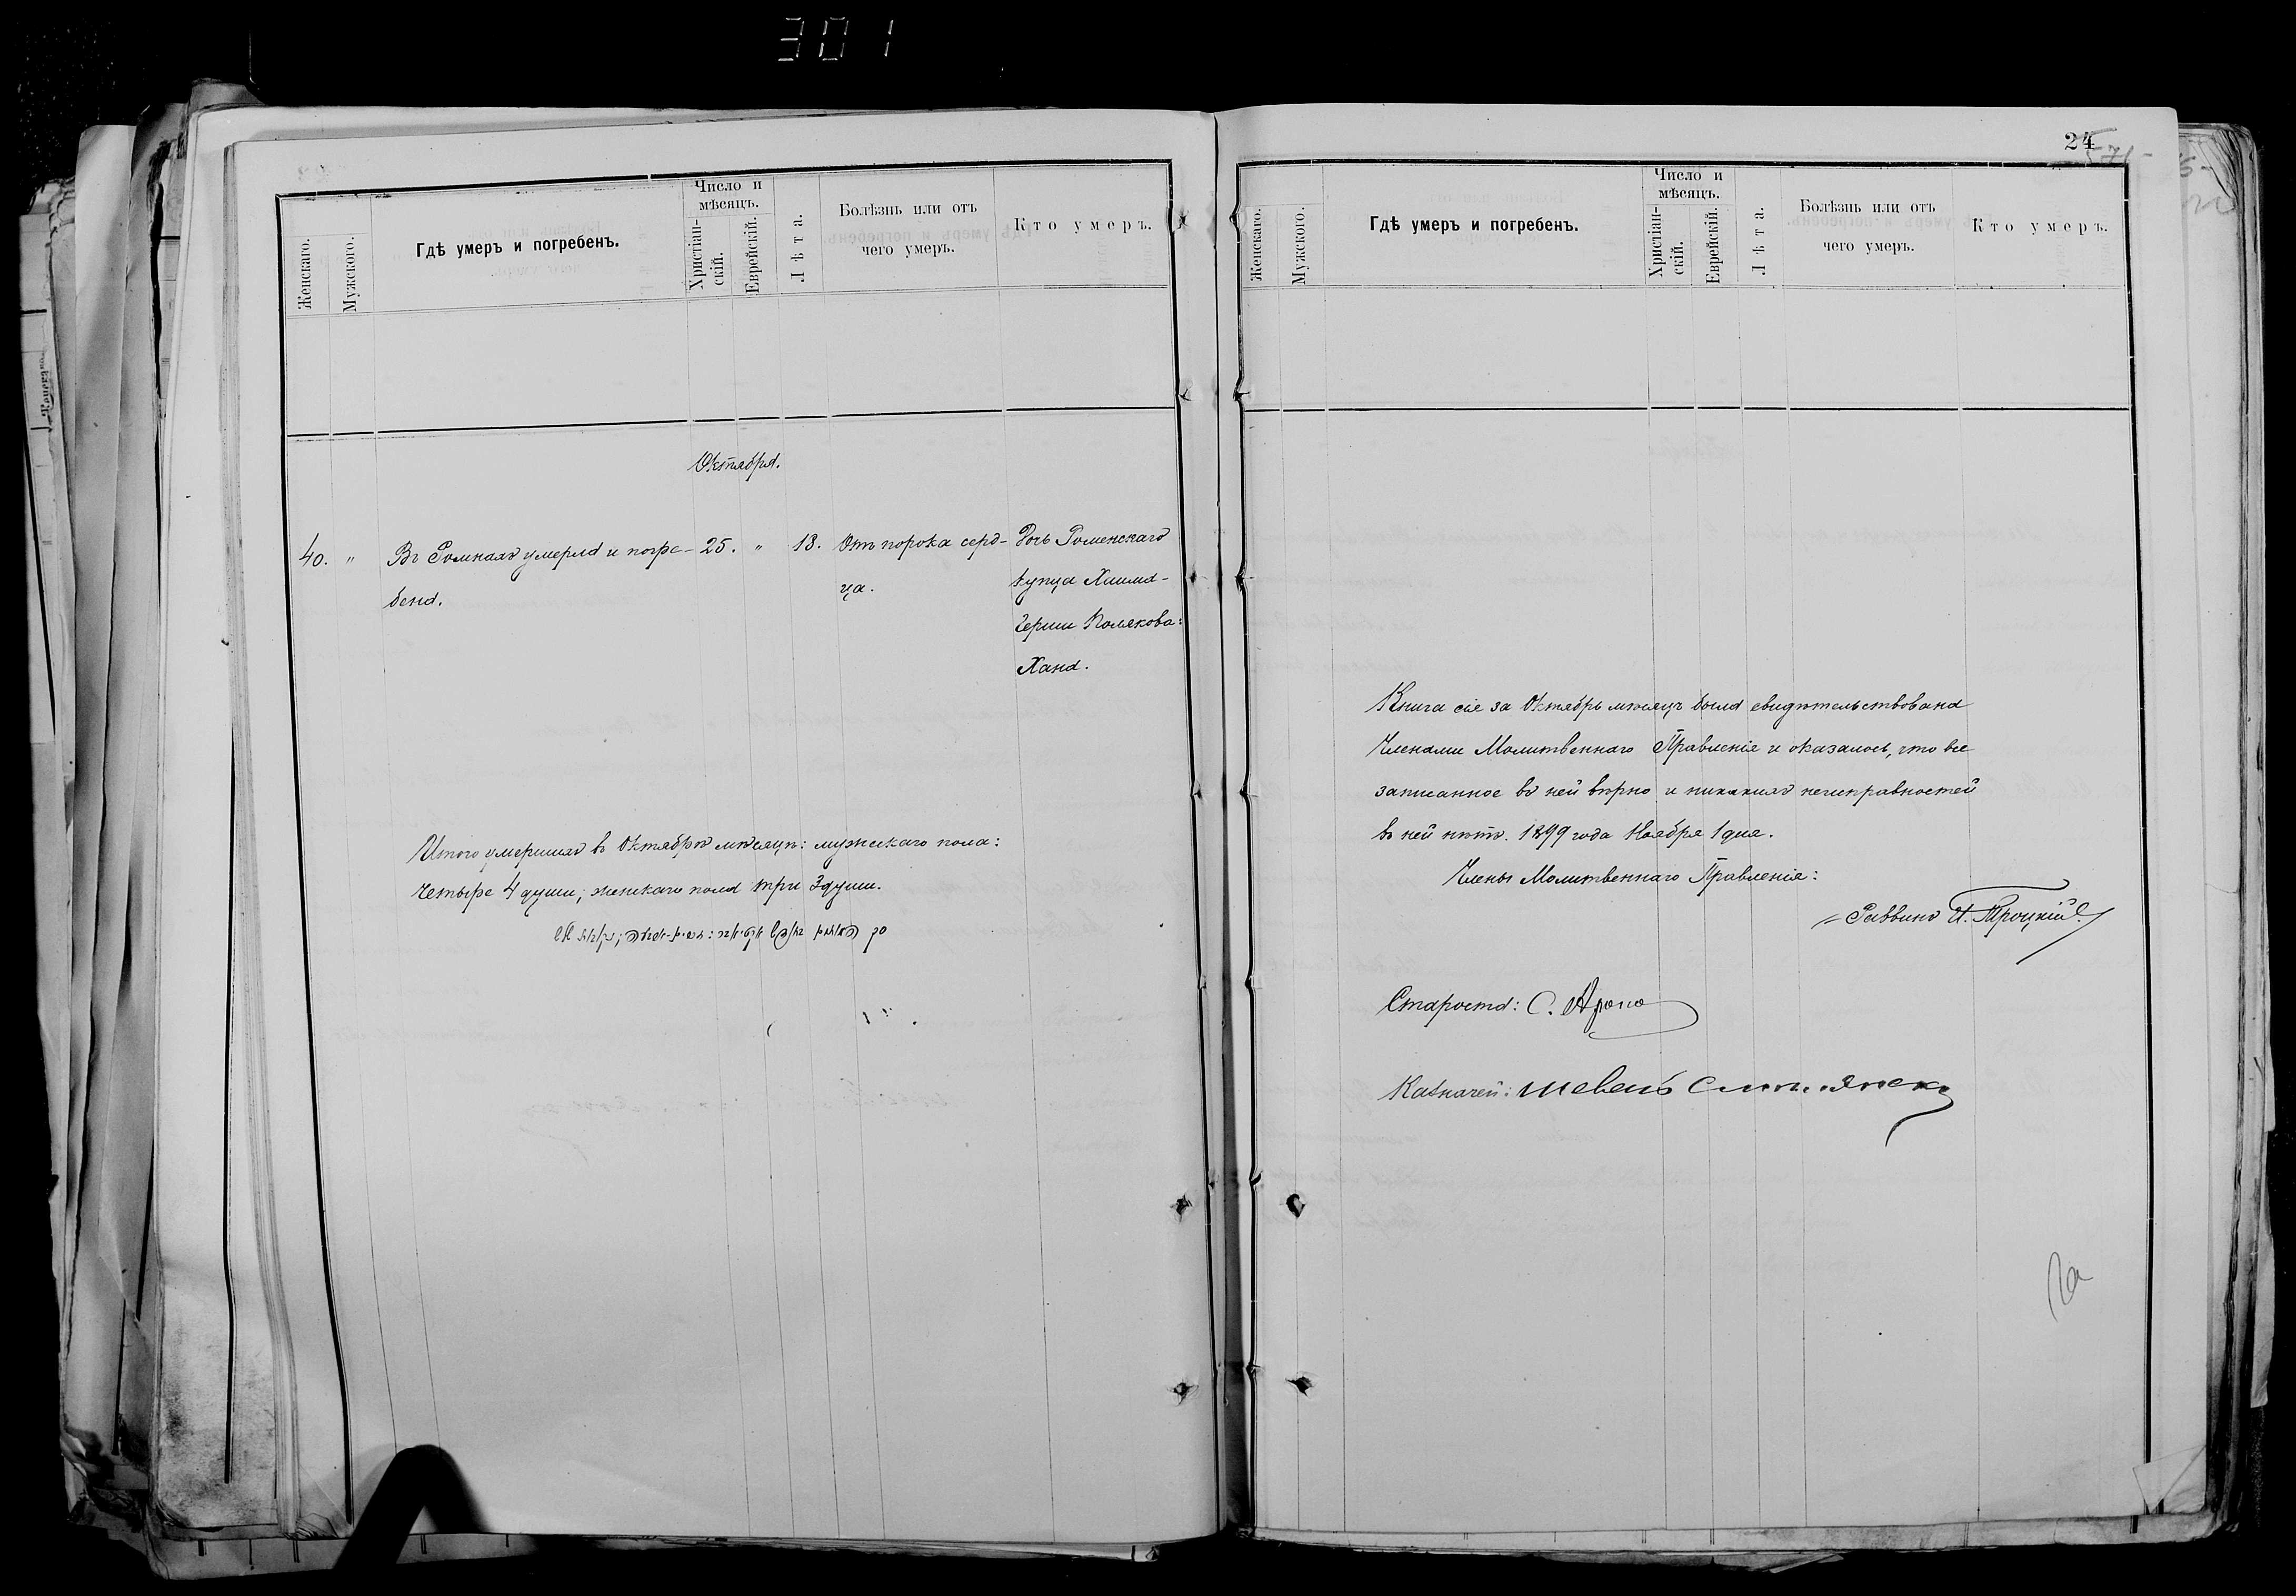 301
Женскаго.
Мужскаго.
Гдѣ умеръ и погребенъ.
Число и
мѣсяцъ.
Христіан-
скій.
Еврейскій.
Лѣта.
Болѣзнь или отъ
чего умеръ.
Кто умеръ.
Октября.
40. " Въ Ромнахъ умерла и погре- 25. " 18. Отъ порока серд- Дочь Роменскаго
бена. ца. купца Хаима-
Герша Полякова:
Хана.
Итого умершихъ въ Октябрѣ мѣсяцѣ: мужескаго пола:
четыре 4 души; женскаго пола три 3 души.
24
Женскаго.
Мужскаго.
Гдѣ умеръ и погребенъ.
Число и
мѣсяцъ.
Христіан-
скій.
Еврейскій.
Лѣта.
Болѣзнь или отъ
чего умеръ.
Кто умеръ.
Книга сія за Октябрь мѣсяцъ была свидѣтельствована
Членами Молитвеннаго Правленія и оказалось, что все
записанное въ ней вѣрно и никакихъ неисправностей
въ ней нѣтъ. 1899 года Ноября 1 дня.
Члены Молитвеннаго Правленія:
Раввинъ И. Троцкій
Староста: С.
Казначей: